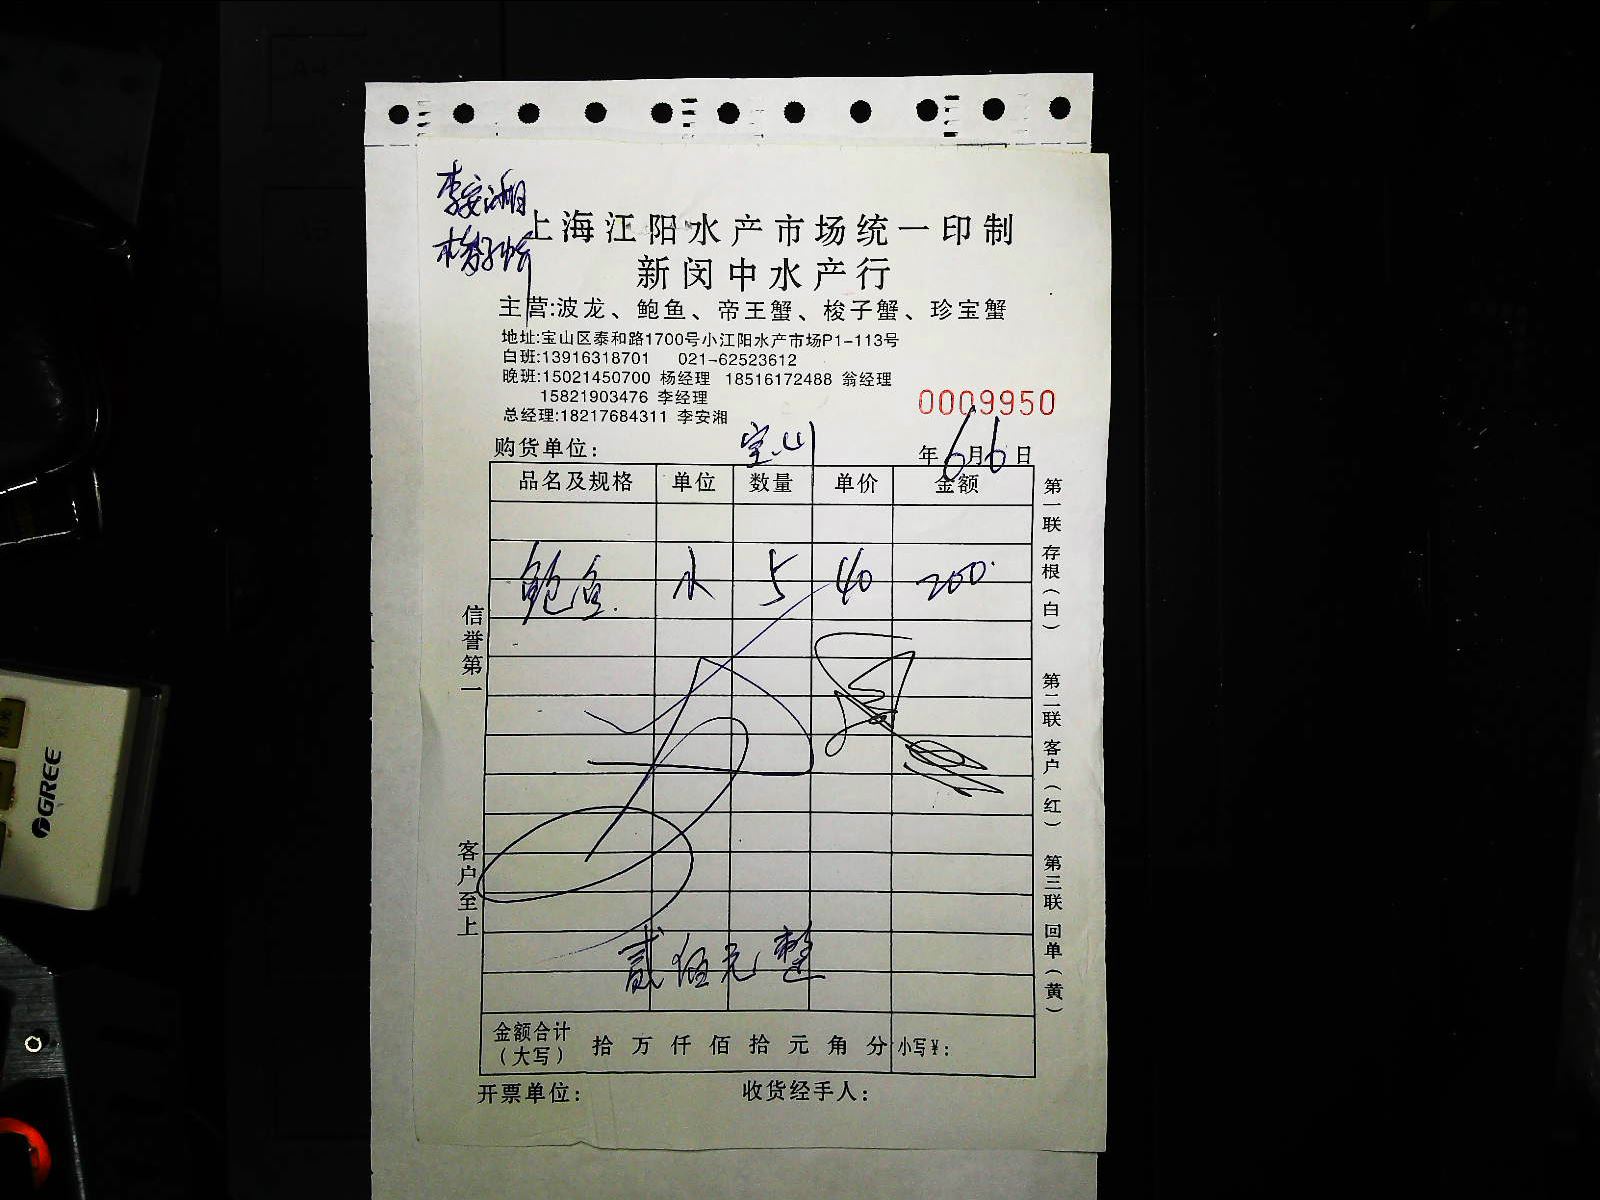 李安湘
上海江阳水产市场统一印制
新闵中水产行
主营:波龙、鲍鱼、帝王蟹、梭子蟹、珍宝蟹
地址:宝山区泰和路1700号小江阳水产市场P1-113号
白班:13916318701 021-62523612
晚班:15021450700 杨经理 18516172488 翁经理
15821903476 李经理
总经理:18217684311 李安湘
0009950
购货单位: 宝山 年6月6日
品名及规格 单位 数量 单价 金额
鲍鱼 水 5 40 200
贰佰元整
金额合计(大写) 拾 万 仟 佰 拾 元 角 分 小写¥:
开票单位: 收货经手人:
信誉第一
客户至上
第一联 存根(白)
第二联 客户(红)
第三联 回单(黄)
GREE